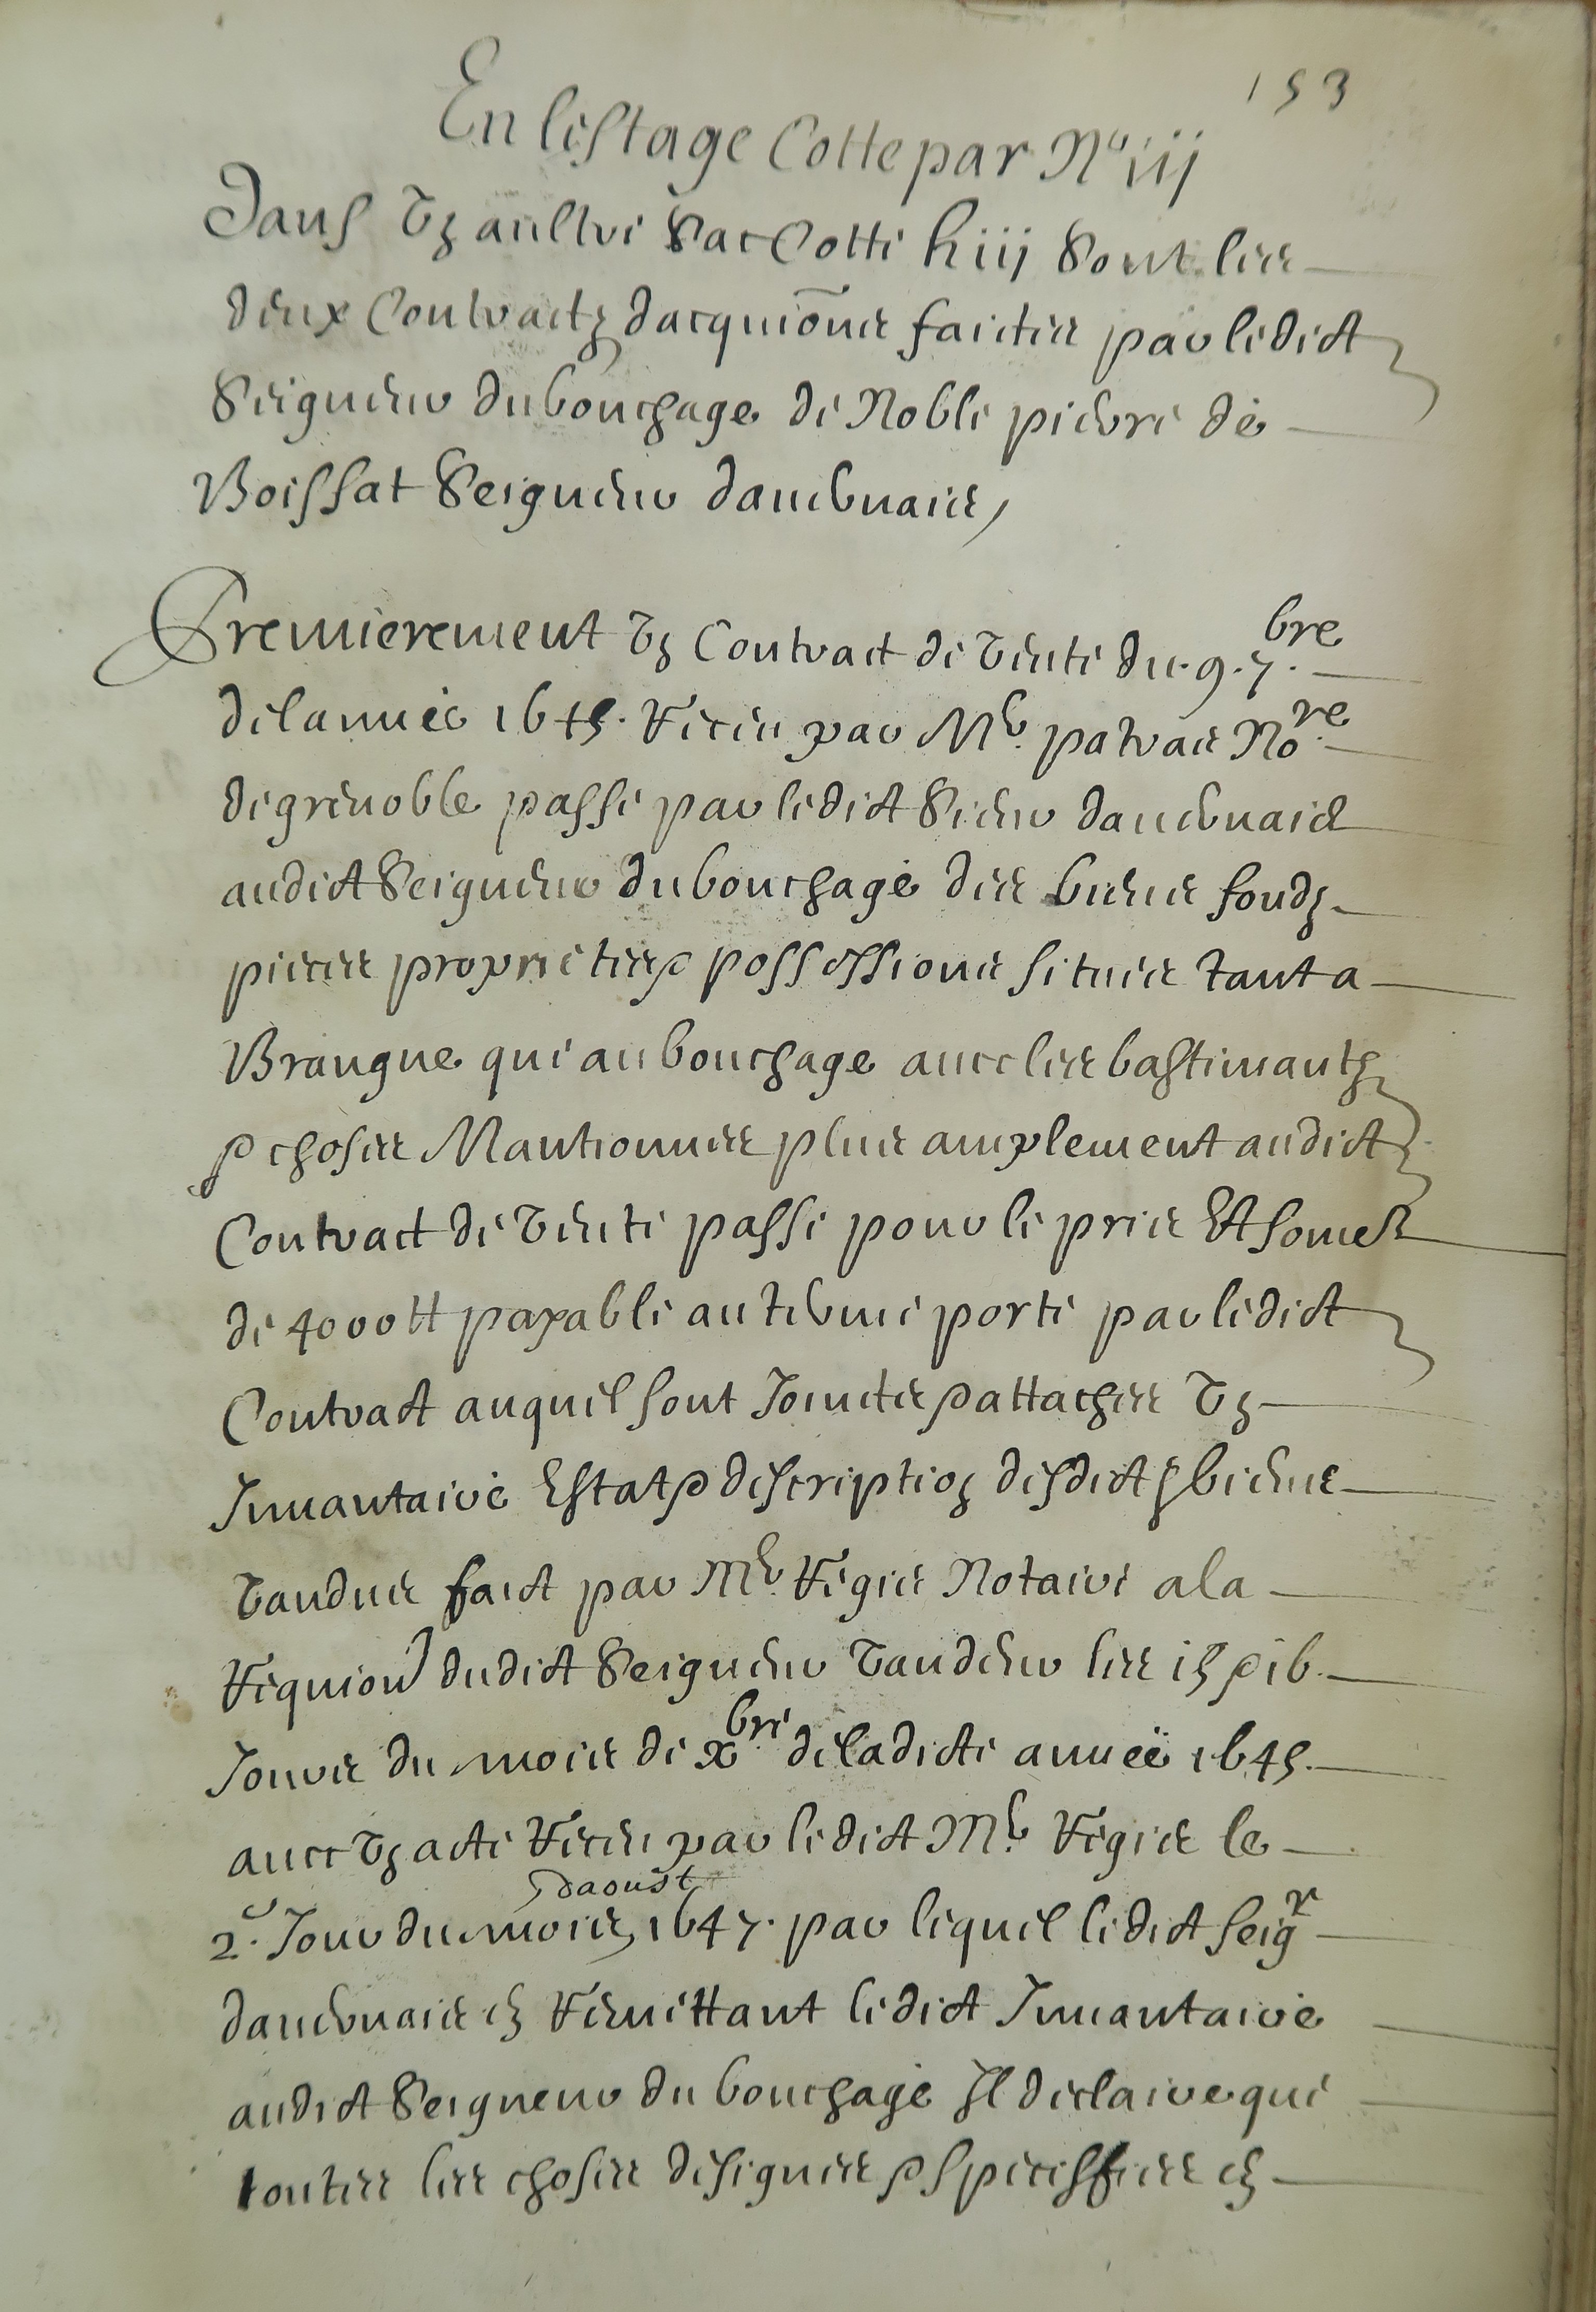 153
En lestage Cotte par No iij
Dans Un aultre Sac Cotté h iij Sont les
deux Contractz dacquiõns faictes par ledict
Seigneur du bouchage de Noble pierre de
Boissat Seigneur dauernais,
Premierement Un Contract de Vente du .9. 7.bre
de lannée 1645. Receu par Me. patras No.re
de grenoble passé par ledict Sieur dauernais
audict Seigneur du bouchage des biens fondz
pieces proprietes & possessions situés tant a
Brangue que au bouchage auec les bastimantz
& choses Mantionnes plus amplement audict
Contract de Vente passé pour le pris Et some
de 4000 tt payable au terme porté par ledict
Contract auquel sont Joinctes & attaches Un
Inuantaire Estat & description desdictz biens
Vandus faict par Me. Regis Notaire a la
Requion dudict Seigneur Vandeur les 15 & 16.
Jours du mois de xbre de ladicte année 1645.
auec Un acte Receu par ledict Me. Regis le
2.e Jour du mois daoust 1647. par lequel ledict seigr
dauernais en Remettant ledict Inuantaire
audict Seigneur du bouchage Il declaire que
toutes les choses designes & speciffies en